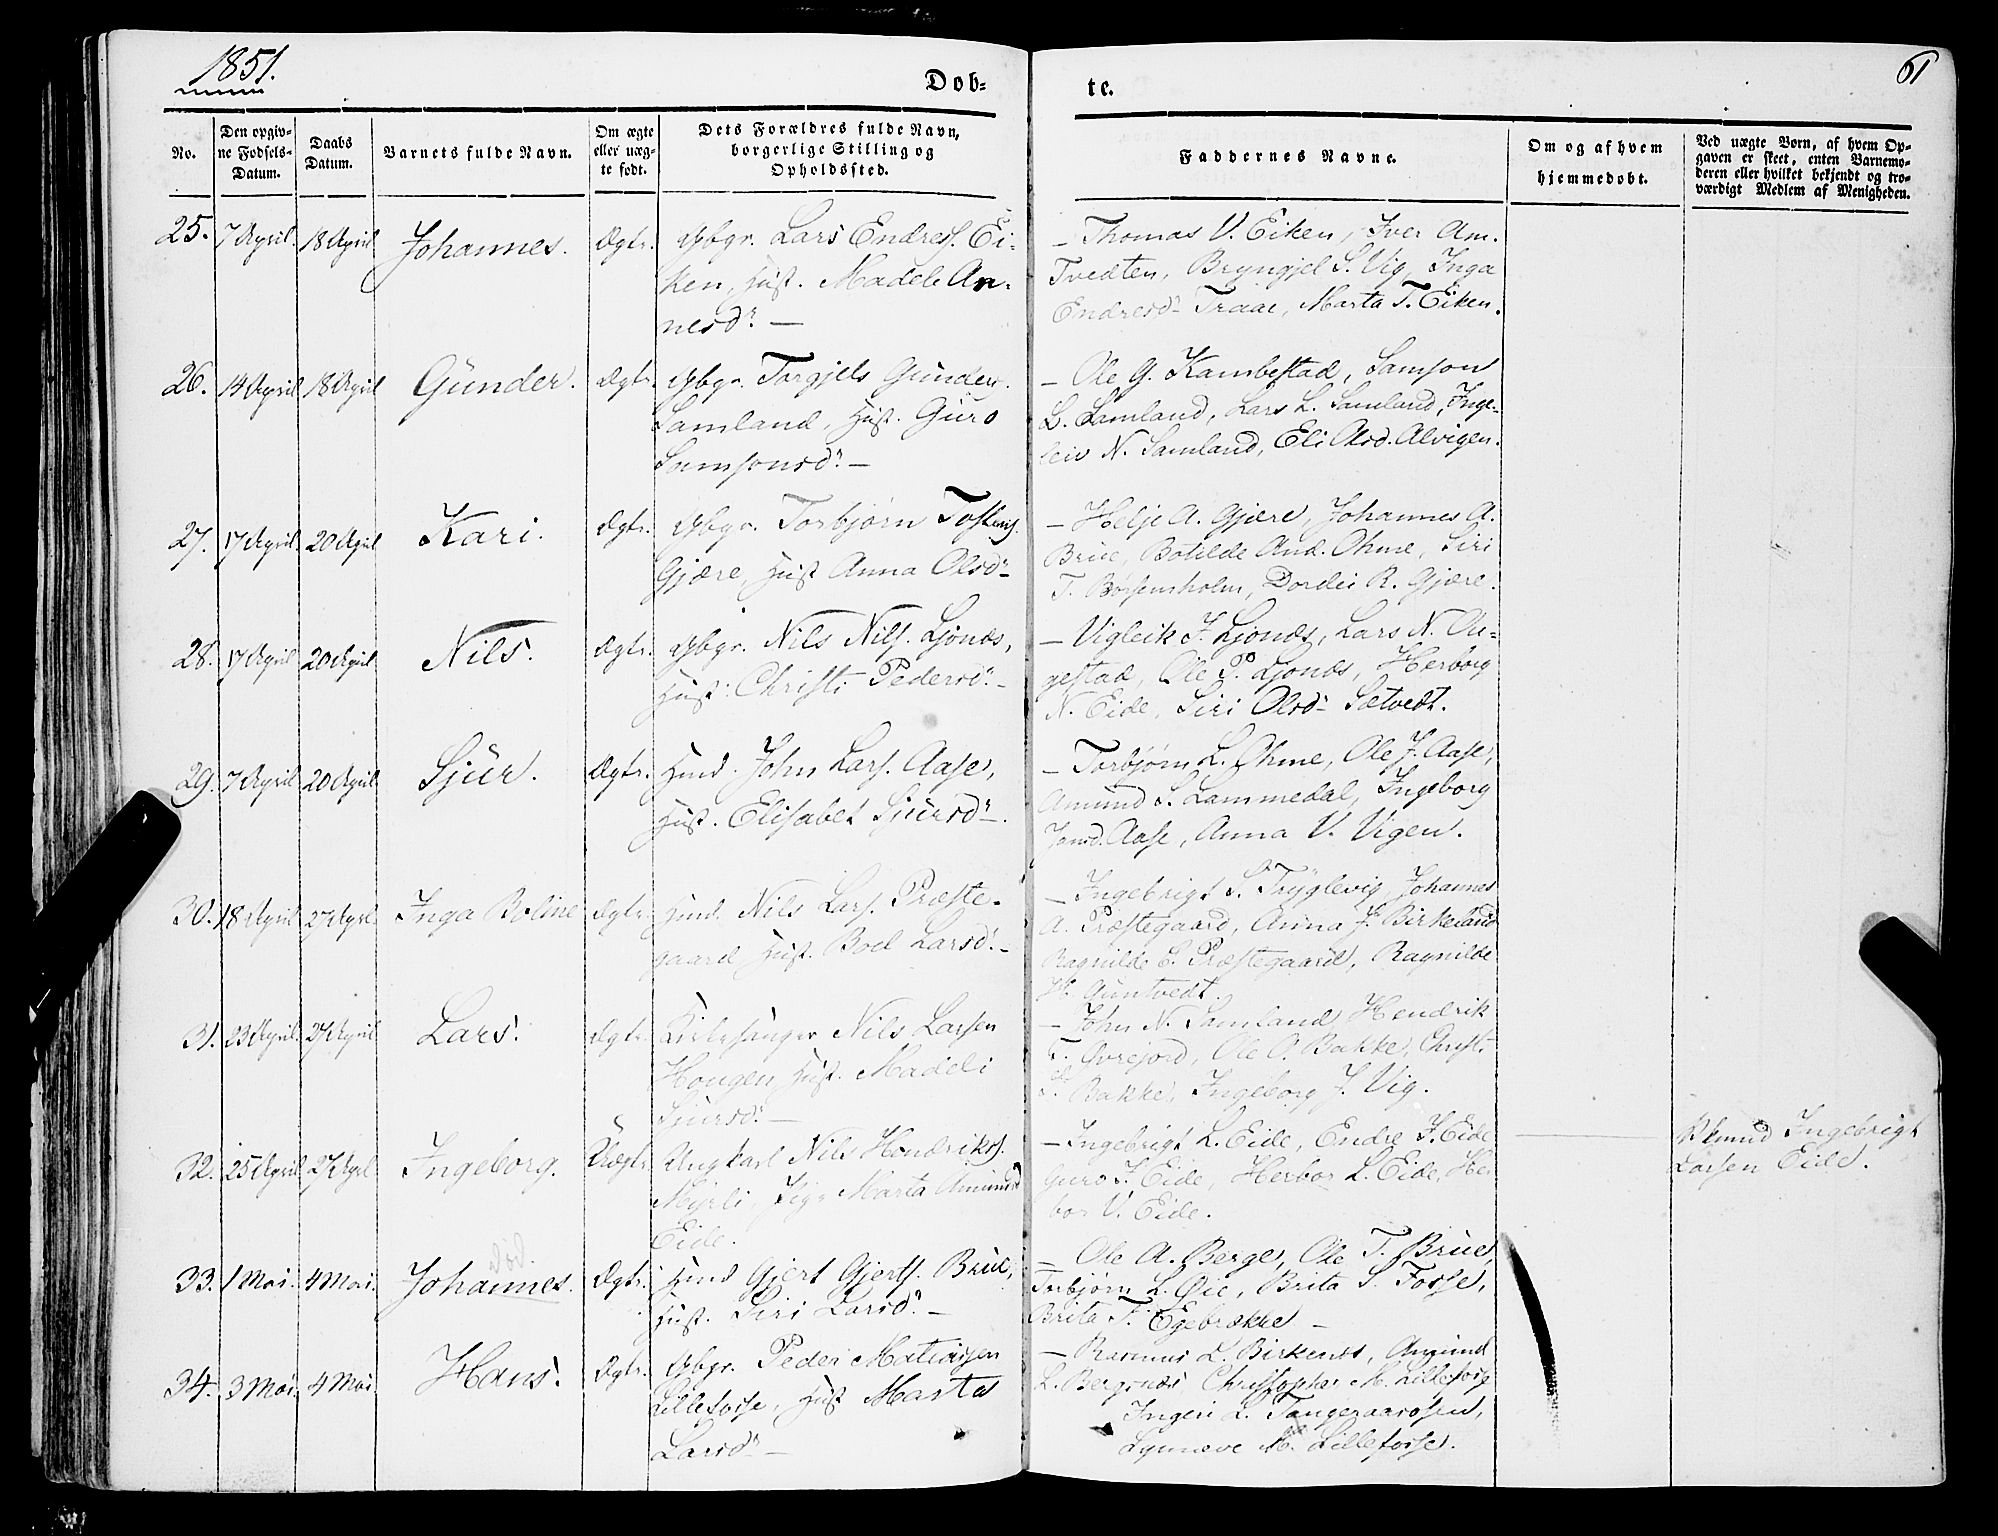 1851.
Døb-
te.
61
No.
Den opgiv-
ne Fødsels-
Datum.
Daabs
Datum.
Barnets fulde Navn.
Om ægte
eller uæg-
te født.
Dets Forældres fulde Navn,
borgerlige Stilling og
Opholdssted.
Faddernes Navne.
Om og af hvem
hjemmedøbt.
Ved uægte Børn, af hvem Op-
gaven er skeet, enten Barnemo-
deren eller hvilket bekjendt og tro-
værdigt Medlem af Menigheden.
25. 7 April. 18 April Johannes. Ægtr. Gbgr. Lars Endres. Ei-
ken, Hust. Madele An-
nesd. —
— Thomas V. Eiken, Iver Am.
Tvedten, Bryngjel S. Vig, Inga
Endresd. Traae, Marta T. Eiken.
26. 14 April 18 April Gunder. Ægtr. Gbgr. Torgjels Gunders.
Samland, Hust. Guro
Samsonsd. —
— Ole G. Kambestad, Samson
L. Samland, Lars L. Samland, Inge-
leiv N. Samland, Eli Olsd. Alvigen.
27. 17 April. 20 April Kari. Ægtr. Gbgr. Torbjørn Tostens.
Gjære, Hust Anna Olsd.
— Helje A. Gjære, Johannes A.
Brue, Botilde And. Ohme, Siri
T. Børsensholm, Dordei R. Gjære.
28. 17 April 20 April Nils. Ægtr. Gbgr. Nils Nils. Ljonæs,
Hust. Christi Pedersd. —
— Vigleik J. Ljonæs, Lars N. Au-
gestad, Ole P. Ljonæs, Herborg
N. Eide, Siri Olsd. Sætvedt.
29. 7 April 20 April Sjur. Ægtr. Hmd. John Lars. Aase,
Hust. Elisabet Sjursd.
— Torbjørn L. Ohme, Ole J. Aase,
Amund S. Lammedal, Ingeborg
Jonsd. Aase, Anna V. Vigen.
30. 18 April 27 Apri Inga Boline Ægtr. Hmd. Nils Lars. Præste-
gaard Hust. Boel Larsd. —
— Ingebrigt S. Tryglevig, Johannes
A. Præstegaard, Anna J. Birkeland
Ragnilde E. Præstegaard, Ragnilde
H. Guntvedt.
31. 23 April. 27 April Lars. Ægtr. Kirkesanger Nils Larsen
Hougen, Hust. Madeli
Sjursd. —
— John N. Samland Hendrik
T. Øvrejord, Ole O. Bakke, Christi
S. Bakke, Ingeborg J. Vig.
32. 25 April 27 April Ingeborg. Uægtr. Ungkarl Nils Hendriks.
Myrli, Pige Marta Amundsd
Eide.
— Ingebrigt L. Eide, Endre J. Eide
Guro J. Eide, Herbor L. Eide, Her
bor V. Eide.
Hmd Ingebrigt
Larsen Eide.
Død.
33. 1 Mai. 4 Mai. Johannes. Ægtr. Hmd Gjert Gjerts. Brue,
Hust. Siri Larsd. —
— Ole A. Berge, Ole T. Brue,
Torbjørn L. Øie, Brita S. Fosse,
Brita T. Egebrække —
34. 3 Mai. 4 Mai. Hans. Ægtr. Gbgr. Peder Matiasen
Lillefosse, Hust Marta
Larsd. —
— Rasmus L. Birkenes, Amund
L. Bergsnæs Christopher M. Lillefosse
Ingeri L. Tangeraasosen,
Synneve M. Lillefosse.